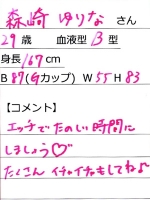 森崎 ゆりな さん
29歳 血液型 B 型
身長 167 cm
B 87(Gカップ) W 55 H 83
【コメント】
エッチでたのしい時間に
しましょう♡
たくさん イチャイチャもしてね♪